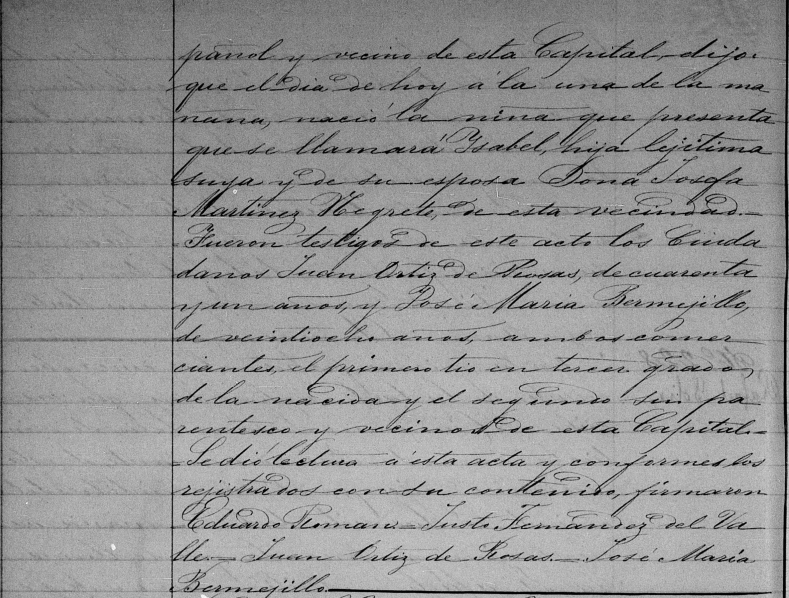 pañol y vecino de esta Capital, dijo:
que el dia de hoy á la una de la ma
ñana, nació la niña que presenta
que se llamará Isabel, hija lejítima
suya y de su esposa Doña Josefa
Martinez Negrete, de esta vecindad.=
Fueron testigos de este acto los Ciuda
danos Juan Ortiz de Rosas, de cuarenta
y un años, y José Maria Bermejillo,
de veintiocho años, ambos comer
ciantes, el primero tio en tercer grado,
de la nacida y el segundo sin pa
rentesco y vecinos de esta Capital.=
=Se dió lectura á esta acta y conformes los
rejistrados con su contenido, firmaron
Eduardo Roman.=Justo Fernandez del Va
lle.=Juan Ortiz de Rosas.=José Maria
Bermejillo.